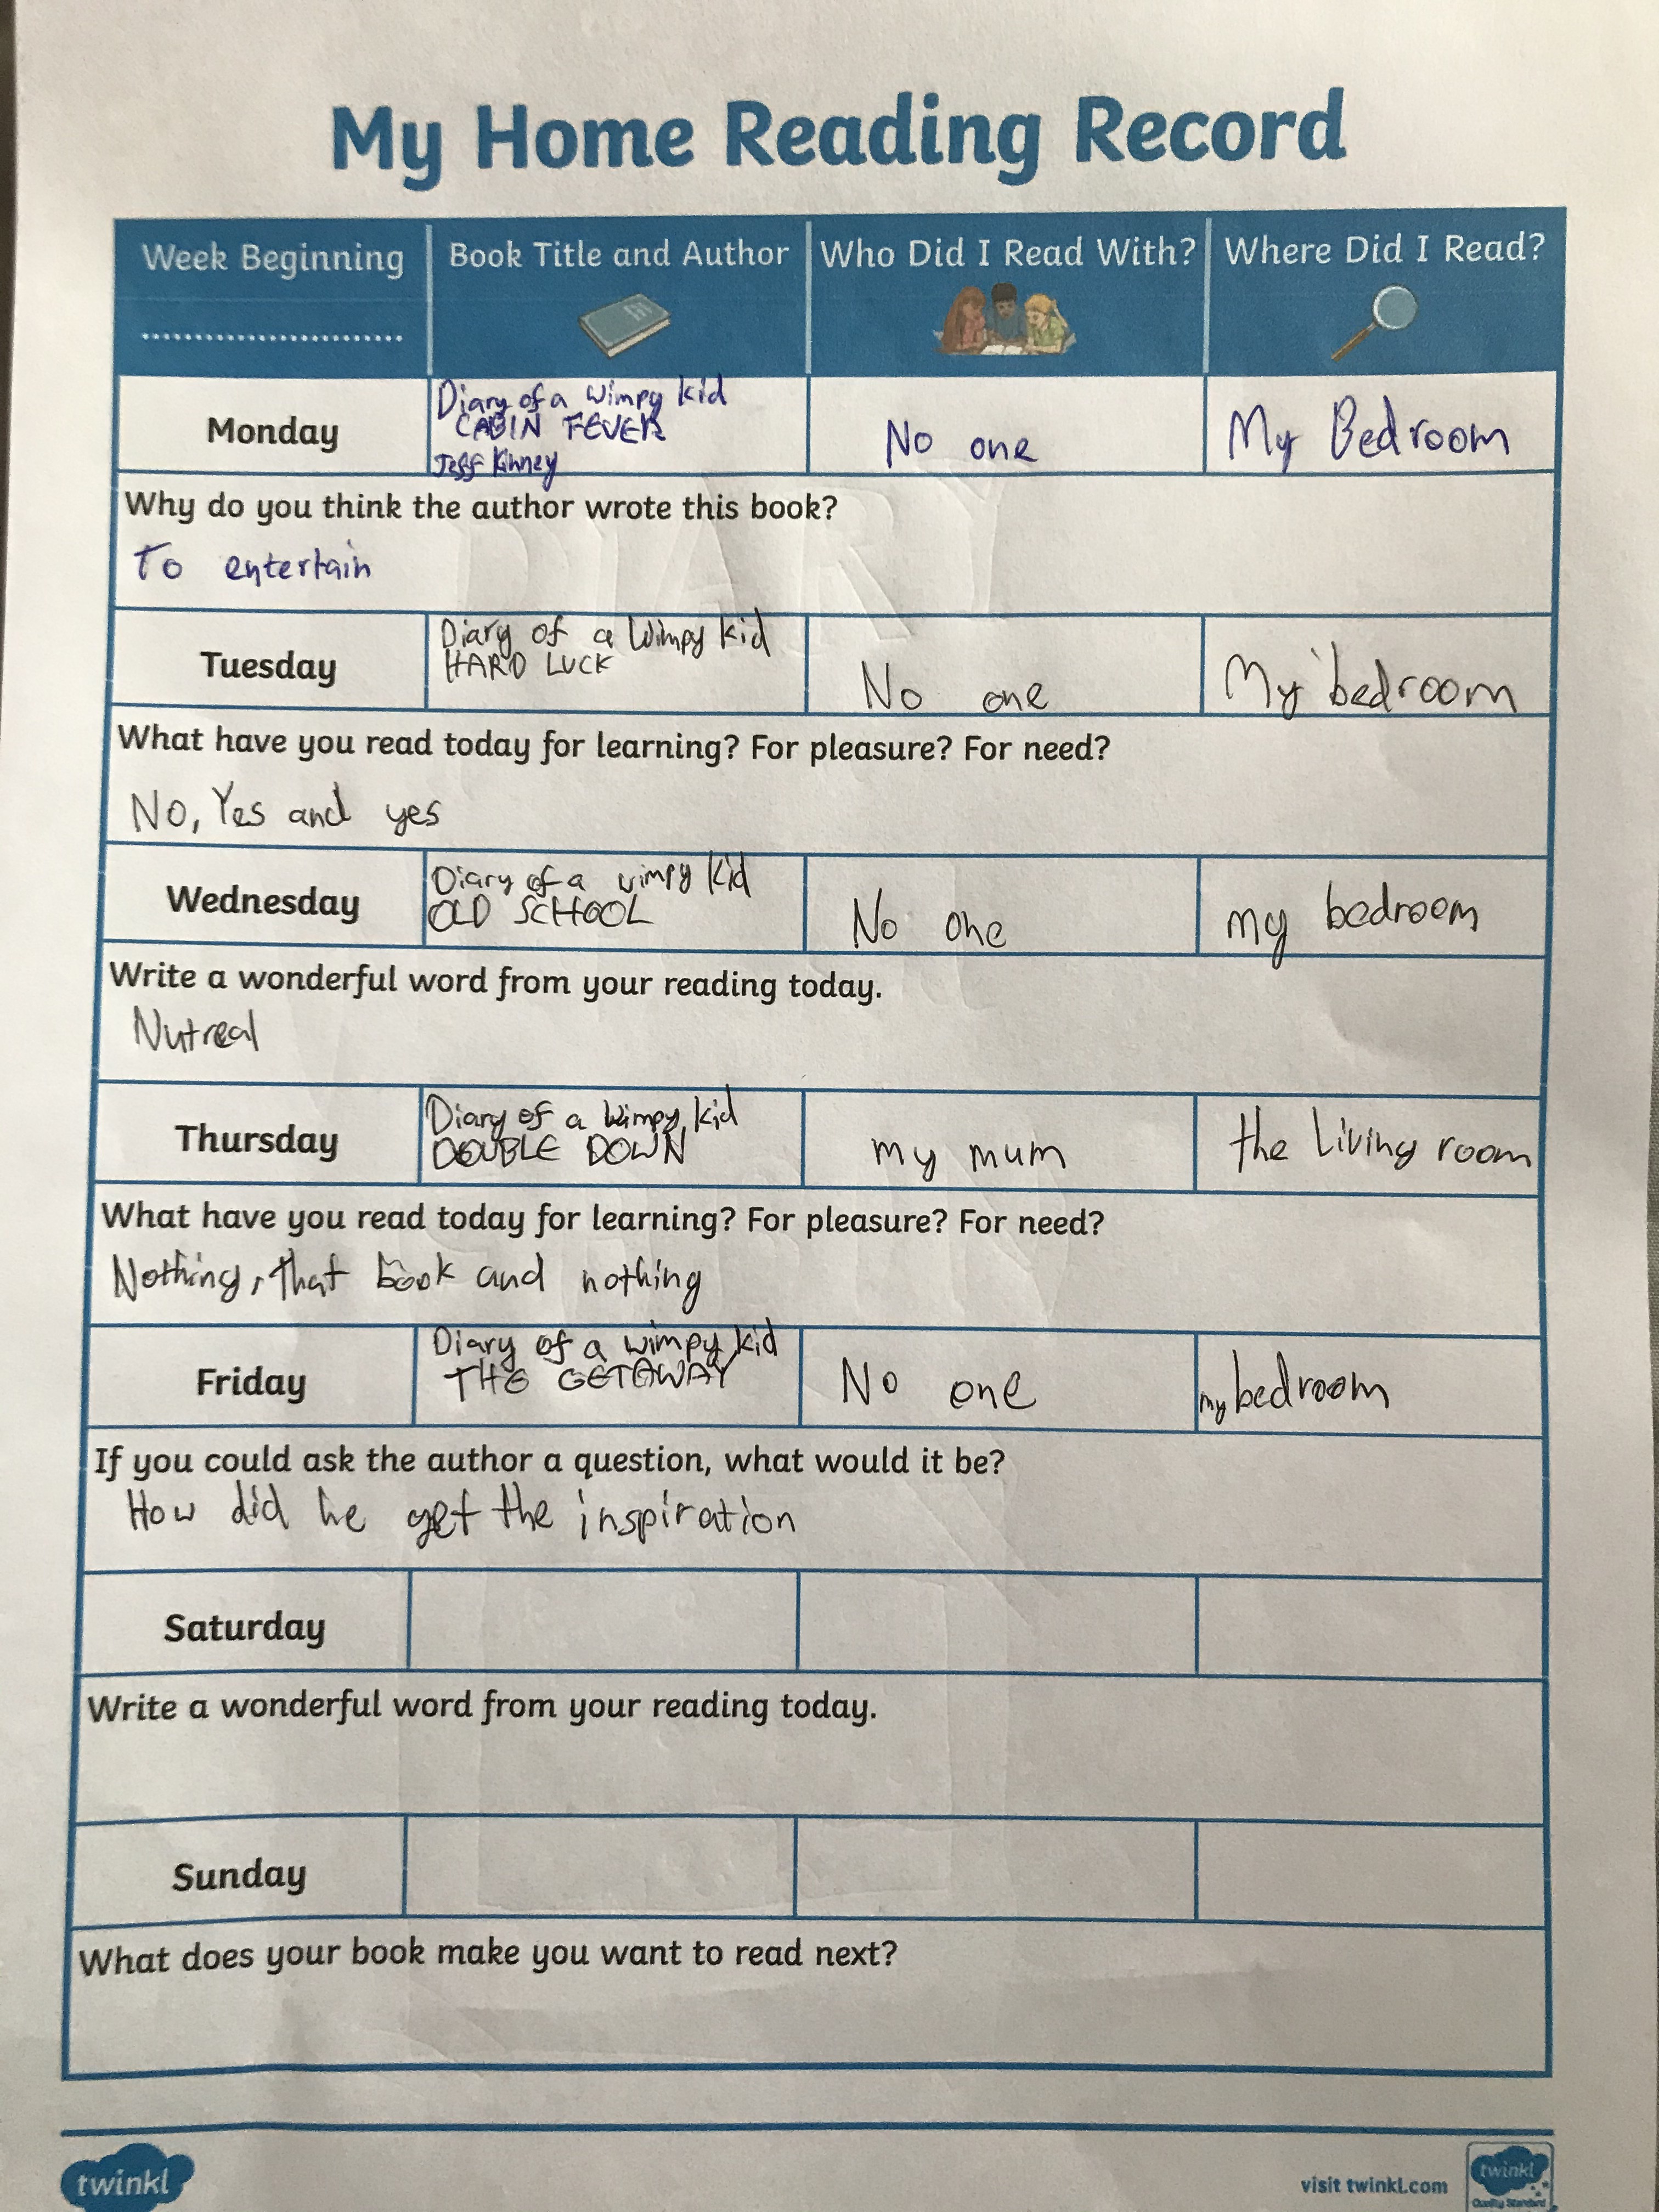 My Home Reading Record
Week Beginning
Book Title and Author
Who Did I Read With?
Where Did I Read?
Monday
Diary of a Wimpy kid
CABIN FEVER
Jeff Kinney
No one
My Bedroom
Why do you think the author wrote this book?
To entertain
Tuesday
Diary of a Wimpy kid
HARD LUCK
No one
My bedroom
What have you read today for learning? For pleasure? For need?
No, Yes and yes
Wednesday
Diary of a wimpy kid
OLD SCHOOL
No one
my bedroom
Write a wonderful word from your reading today.
Nutreal
Thursday
Diary of a Wimpy kid
DOUBLE DOWN
my mum
the Living room
What have you read today for learning? For pleasure? For need?
Nothing, that book and nothing
Friday
Diary of a wimpy kid
THE GETAWAY
No one
my bedroom
If you could ask the author a question, what would it be?
How did he get the inspiration
Saturday
Write a wonderful word from your reading today.
Sunday
What does your book make you want to read next?
twinkl
visit twinkl.com
twinkl
Quality Standard